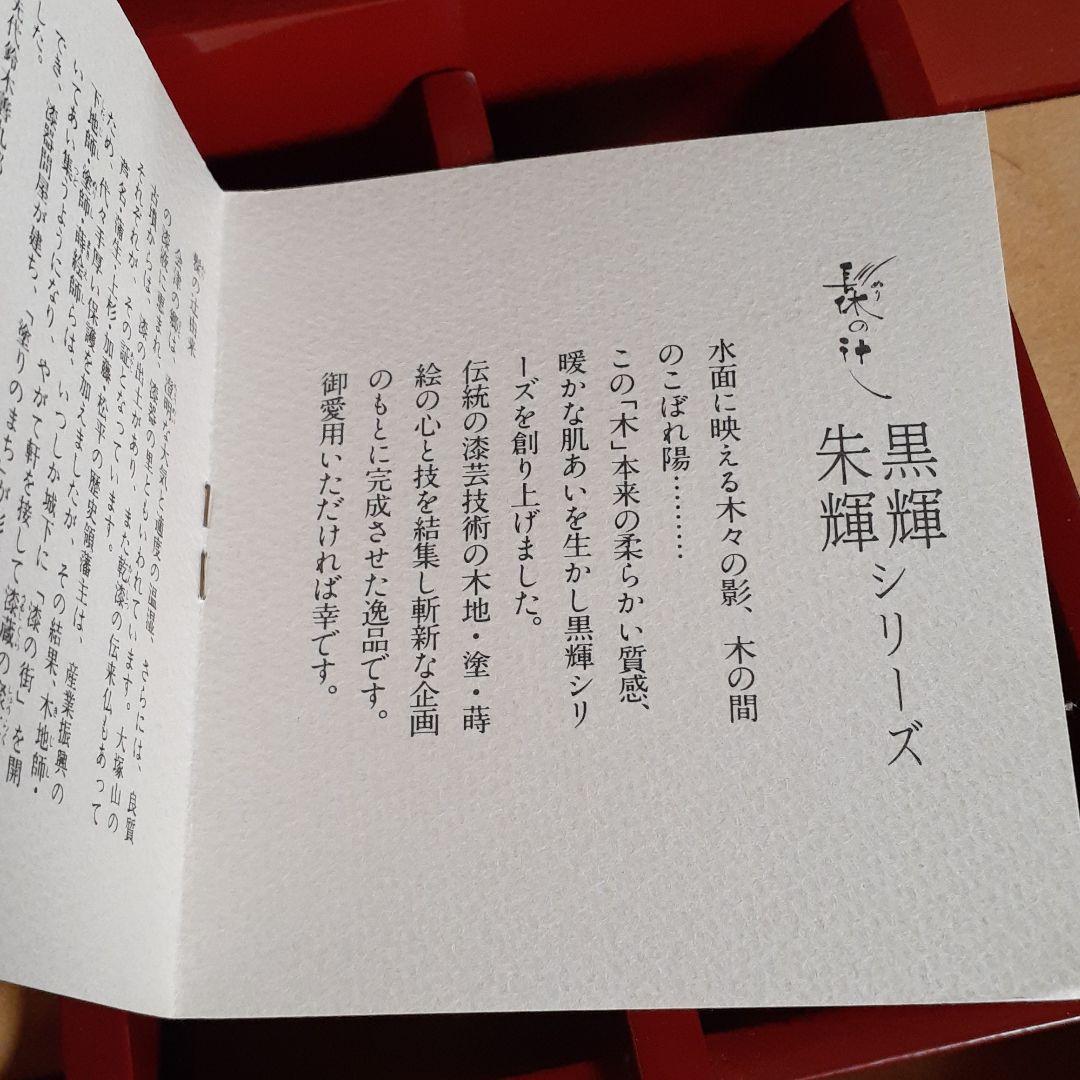 髹の辻
ぬり
黒輝
朱輝
シリーズ
水面に映える木々の影、木の間
のこぼれ陽………
この「木」本来の柔らかい質感、
暖かな肌あいを生かし黒輝シリ
ーズを創り上げました。
伝統の漆芸技術の木地・塗・蒔
絵の心と技を結集し斬新な企画
のもとに完成させた逸品です。
御愛用いただければ幸です。
髹の辻由来
会津の郷は、澄明な大気と適度の温湿、さらには、良質
の漆液に恵まれ、漆器の里ともいわれています。大塚山の
古墳からは、漆の出土があり、また乾漆の伝来仏もあって
それぞれが、その証となっています。
芦名・蒲生・上杉・加藤・松平の歴史領藩主は、産業振興の
ため、代々手厚い保護を加えましたが、その結果、木地師・
下地師・塗師・蒔絵師らは、いつしか城下に「漆の街」を開
いてあい集うようになり、やがて軒を接して漆蔵の聚
でき、漆器問屋が建ち、「塗りのまち」が
した。
代鈴木善九郎